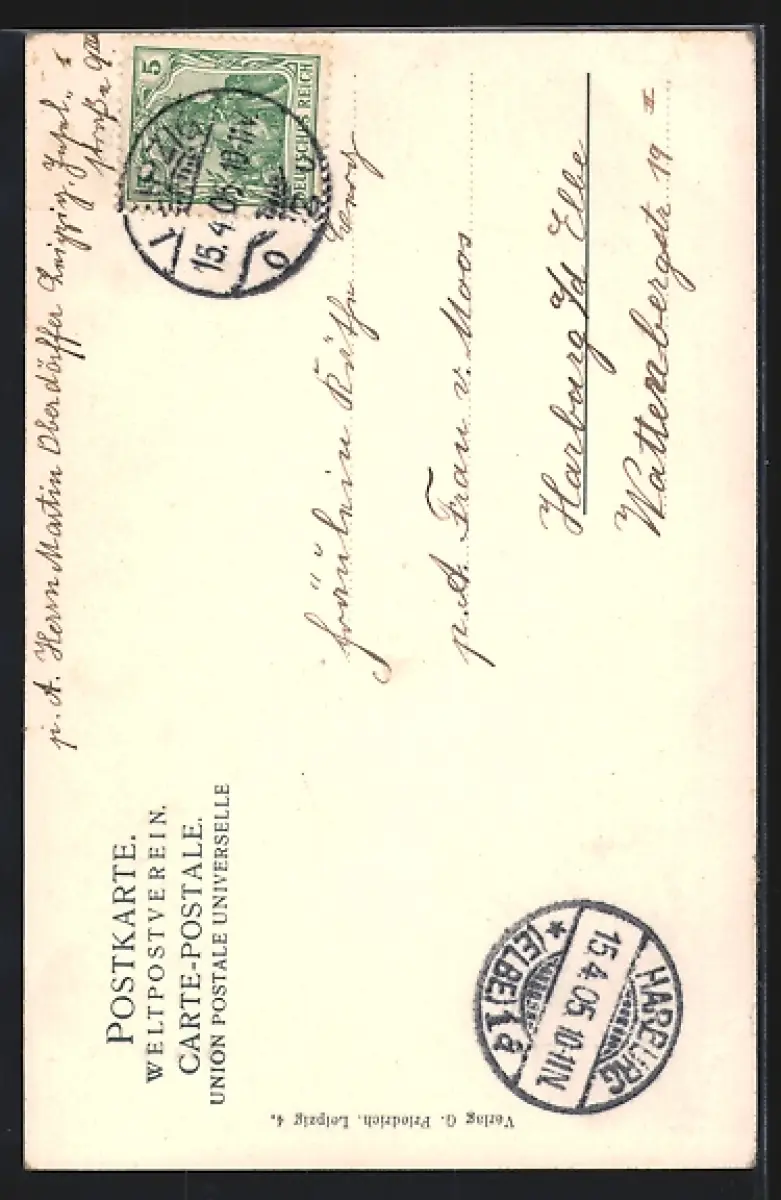 p. A. Herrn Martin Oberdörffer Leipzig, Insel-
straße 9III
POSTKARTE.
WELTPOSTVEREIN.
CARTE-POSTALE.
UNION POSTALE UNIVERSELLE
5
DEUTSCHES REICH
LEIPZIG
15.4.05. 10-11V.
Fräulein Käthe
p. A. Frau v. Moos
Harburg a/d Elbe
Wattenbergstr 19 II
HARBURG
15.4.05. 10-11N.
* (ELBE) 1 a
Verlag G. Friedrich, Leipzig 4.